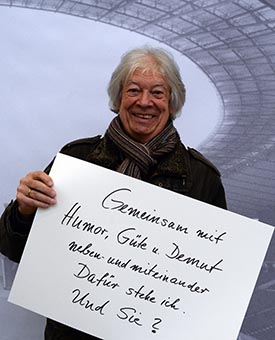 Gemeinsam mit
Humor, Güte u. Demut
neben- und miteinander
Dafür stehe ich.
Und Sie?